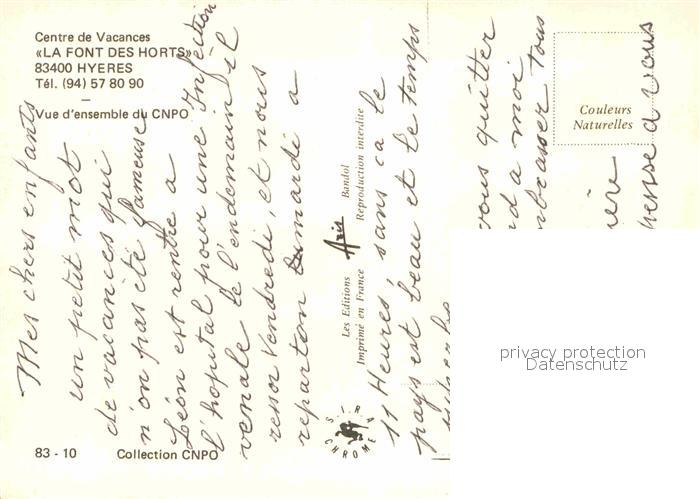 Centre de Vacances
«LA FONT DES HORTS»
83400 HYERES
Tél. (94) 57 80 90
Vue d'ensemble du CNPO
Mes chers enfants
un petit mot
de vacances qui
n'on pas été fameuse
Léon est rentré a
l'hopital pour une Infection
vénale le l'endemain il
ressor Vendredi, et nous
reparton Mardi a
11 Heures, sans ca le
pays est beau et le temps
superbe
vous quitter
a moi
embrasser tous
pense a vous
Les Editions Aris Bandol
Imprimé en France Reproduction interdite
S.I.R.A.
CHROME
Couleurs
Naturelles
privacy protection
Datenschutz
83 - 10 Collection CNPO